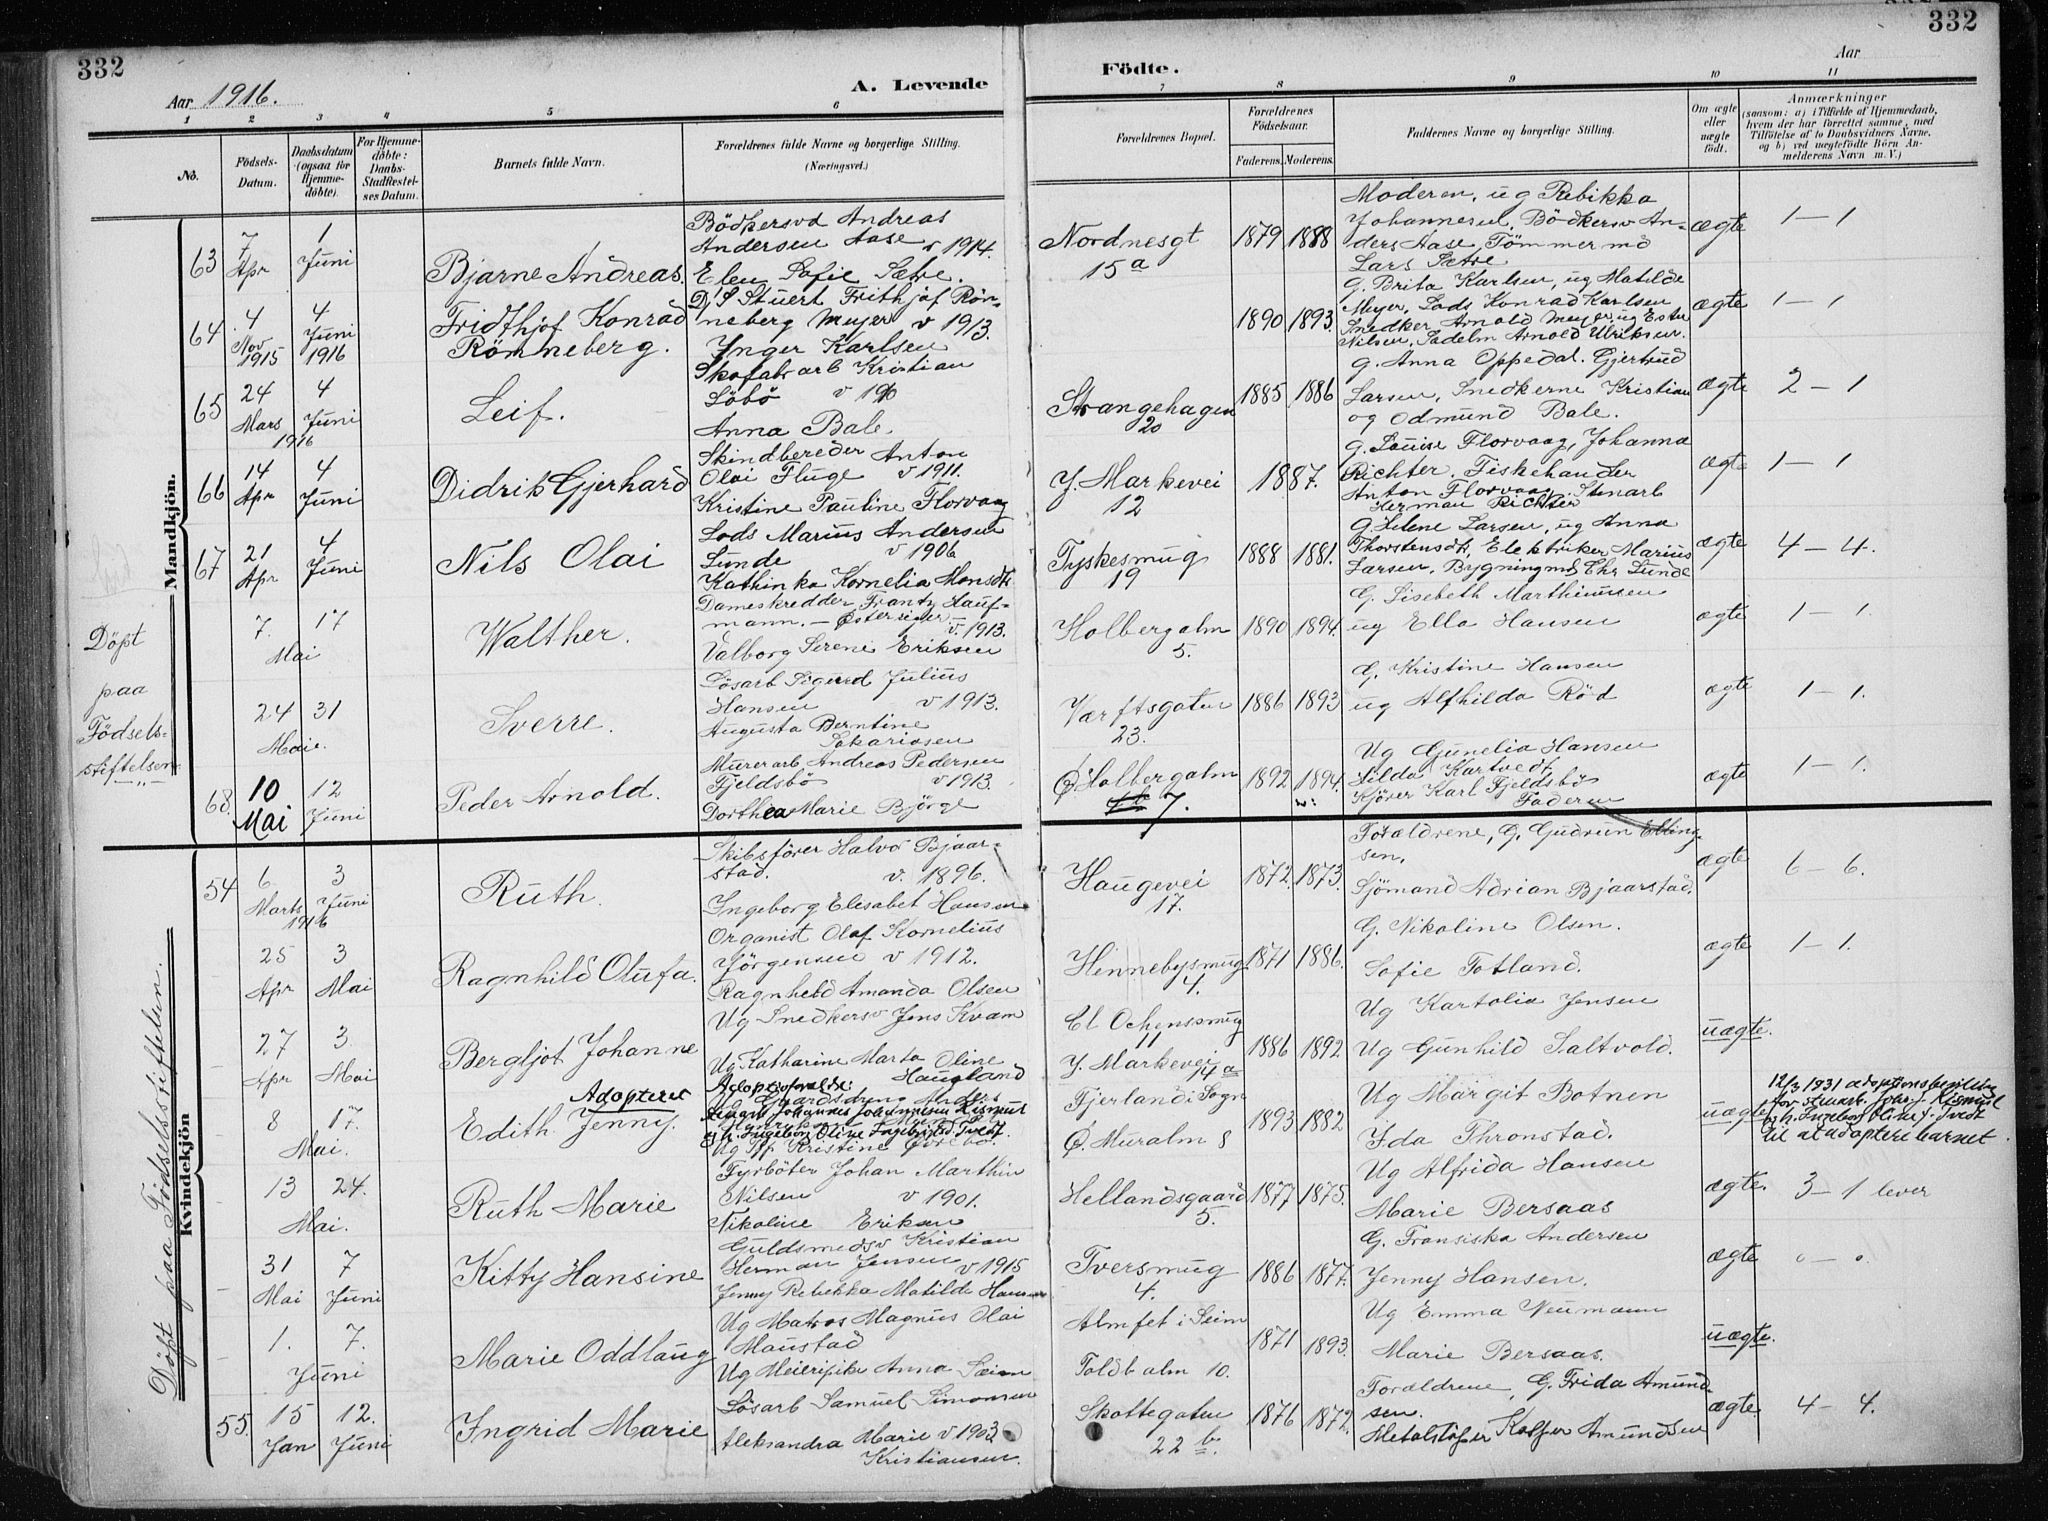 332
332
Aar 1916.
A. Levende
Födte.
Aar
1 2 3 4 5 6 7 8 9 10 11
No.
Födsels-Datum.
Daabsdatum (ogsaa for Hjemme-döbte).
For Hjemme-döbte: Daabs-Stadfæstel-ses Datum.
Barnets fulde Navn.
Forældrenes fulde Navne og borgerlige Stilling. (Næringsvei.)
Forældrenes Bopæl.
Forældrenes Födselsaar.
Faderens. Moderens.
Faddernes Navne og borgerlige Stilling.
Om ægte eller uægte födt.
Anmærkninger
(saasom: a) i Tilfælde af Hjemmedaab, hvem der har forrettet samme, med Tilföielse af to Daabsvidners Navne, og b) ved uægtefödte Börn An-melderens Navn m. V.)
Mandkjön.
63
7 Apr
1 Juni
Bjarne Andreas.
Bödkersvd Andreas
Andersen Aase v 1914.
Elen Sofie Sætre.
Nordnesgt
15a
1879 1888
Moderen, ug Rebikka
Johannesen, Bödkersv An-
ders Aase, Tömmermd
Lars Sætre
ægte
1 – 1
64
4 Nov 1915
4 Juni 1916
Fridthjof Konrad
Römneberg.
D/S Stuert Frithjof Rön-
neberg Meyer v 1913.
Inger Karlsen
1890 1893.
G. Brita Karlsen, ug Matilde
Meyer, Lods Konrad Karlsen
Snedker Arnold Meyer, ug Ester
Nilsen, Sadelm Arnold Ulriksen.
ægte
1 – 1
65
24 Mars 1916
4 Juni
Leif.
Skofabr arb Kristian
Löbö v 1910
Anna Bale.
Strangehagen
20
1885 1886
G. Anna Oppedal. Gjertrud
Larsen, Snedkerne Kristian
og Odmund Bale.
ægte
2 – 1
66
14 Apr
4 Juni
Didrik Gjerhard
Skindbereder Anton
Olai Fluge v 1911.
Kristine Pauline Florvaag
Y. Markevei
12
1887.
G. Louise Florvaag, Johanna
Richter. Fiskehandler
Anton Florvaag. Stenarb
Herman Richter
ægte
1 – 1
67
21 Apr
4 Juni
Nils Olai
Lods Marius Andersen
Lunde v 1906
Kathinka Kornelia Monsdtr
Tyskesmug
19
1888 1881.
G. Helene Larsen, ug Anna
Thorstensdtr, Elektriker Marius
Larsen, Bygningmd Chr Lunde
ægte
4 – 4.
Döpt
paa
Födsels-
stiftelsen
7. Mai
17
Walther.
Dameskredder Frantz Hauf-
mann. – Østeriger v. 1913.
Valborg Serene Eriksen
Holbergalm
5.
1890 1894.
G. Lisebeth Marthinussen
ug Ella Hansen
ægte
1 – 1.
24 Mai.
31
Sverre.
Lösarb Sigurd Julius
Hansen v 1913.
Augusta Berntine
Sakariasen
Værftsgaten
23.
1886 1893
G. Kristine Hansen
ug Alfhilda Röd
ægte
1 – 1.
68.
10 Mai
12 Juni
Peder Arnold.
Murerarb Andreas Pedersen
Fjeldsbö v 1913.
Dorthea Marie Björge
Ø Holbergalm
7.
1892 1894.
Ug Gunelia Hansen
Hilda Kartvedt
Kjörer Karl Fjeldsbö
Faderen
ægte
1 – 1.
Kvindekjön
Döpt paa Födselsstiftelsen.
54
6 Marts 1916
3 Juni
Ruth.
Skibsförer Halvor Bjaar-
stad. v. 1896.
Ingeborg Elesabet Hansen
Haugevei
17.
1872. 1873.
Forældrene, G. Gudrun Elling-
sen.
Sjömand Adrian Bjaarstad.
ægte
6 – 6.
25 Apr
3 Mai
Ragnhild Olufa.
Organist Olaf Kornelius
Jörgensen v 1912.
Ragnhild Amanda Olsen
Hennebysmug
4.
1871 1886.
G. Nikoline Olsen.
Sofie Totland.
ægte
1 – 1.
27 Apr
3. Mai
Bergljot Johanne
Ug Snedkersv Jens Kvam
Ug. Katharine Marta Oline
Haugland
Cl Ochenssmug
11
Y. Markevei
14a
1886 1892.
Ug Kartolia Jensen
Ug Gunhild Saltvold.
uægte.
8 Mai.
17.
Adopteret
Edith Jenny.
Adoptivforældre:
Johannes Johannesen Kismul
h. Ingeborg Oline
Tvedt.
Fjerland i Sogn
Ø. Muralm 8
1893 1882
Ug Margit Botnen
Ida Thronstad.
uægte
12/3 1931 adoptionsbevilling
for stuearb. Johs. J. Kismul
og h. Ingeborg Oline f. Tvedt
til at adoptere barnet.
13 Mai.
24.
Ruth Marie
Fyrböter Johan Marthin
Nilsen v 1901.
Nikoline Eriksen
Hellandsgaard
5.
1877 1875.
Ug Alfrida Hansen
Marie Bersaas
ægte.
3 – 1 lever
31 Mai
7 Juni
Kitty Hansine
Guldsmedsv Kristian
Herman Jensen v 1915
Jenny Rebekka Matilde Hansen
Tversmug
4.
1886 1877.
G. Fransiska Andersen
Jenny Hansen.
ægte
0 – 0.
1. Juni
7.
Marie Oddlaug
Ug Matros Magnus Olai
Maustad
Ug Meieripike Anna Seim
Almfet i Seim
Toldb alm 10.
1871 1893.
Ug Emma Neumann
Marie Bersaas.
uægte.
55.
15 Jan
12. Juni
Ingrid Marie
Lösarb Samuel Simonsen
Aleksandra Marie v 1903
Kristiansen.
Skottegaten
22 b.
1876 1872.
Forældrene, G. Frida Amund-
sen.
Metalstöper Amundsen
ægte.
4 – 4.